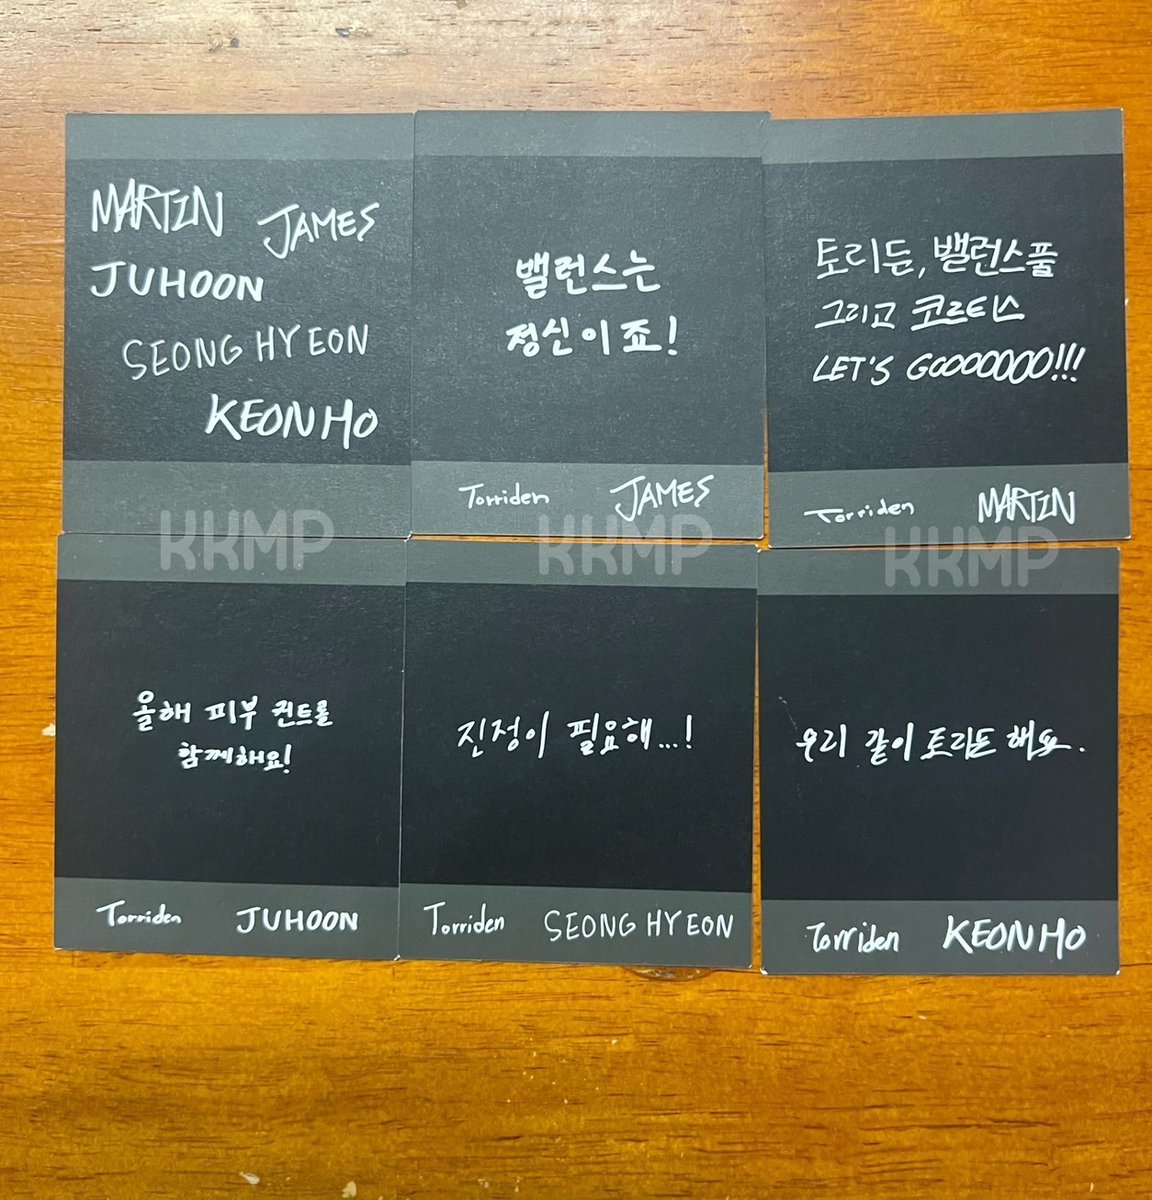 MARTIN JAMES
JUHOON
SEONGHYEON
KEONHO
밸런스는
정신이죠!
Torriden JAMES
토리든, 밸런스풀
그리고 코르티스
LET'S GOOOOOOO!!!
Torriden MARTIN
KKMP KKMP KKMP
올해 피부 퀸트를
함께해요!
Torriden JUHOON
진정이 필요해...!
Torriden SEONGHYEON
우리 같이 토리든 해요.
Torriden KEONHO